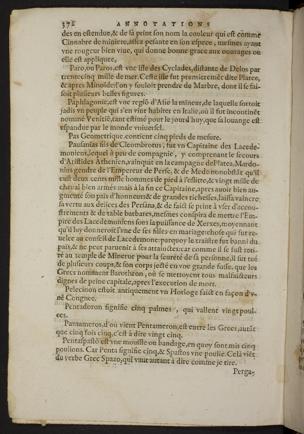 372 ANNOTATIONS
des m estendue, & de sa peint son nom la couleur qui est comme
Cinnabre de miniere, assez pesante en son espece, mesmes ayant
vne rougeur bien viue, qui donne bonne grace aux ouurages où
elle est appliquee,
Paro, ou Paros, est vne isle des Cyclades, distante de Delos par
trentecinq mille de mer. Ceste isle fut premierement dite Platea,
& apres Minoide: l'on y souloit prendre du Marbre, dont il se fai-
soit plusieurs belles figures.
Paphlagonie, est vne regiō d'Asie la mineur, de laquelle sortoit
jadis vn peuple qui s'en vint habiter en Italie, où il fut incontinēt
nommé Venitiē, tant estimé pour le jourd'huy, que sa louange est
espandue par le monde vniuersel.
Pas Geometrique, contient cinq pieds de mesure.
Pausanias fils de Cleombrotus, fut vn Capitaine des Lacede-
moniens, lequel à peu de compagnie, y comprenant le secours
d'Aristides Athenien, vainquit en la campagne de Platea, Mardo-
nius gendre de l'Empereur de Perse, & de Medo
deux cens mille hommes de pied à l'eslite, & vingt mille de
cheual bien armés mais à la fin ce Capitaine, apres auoir bien aug-
menté son païs d'honneur & de grandes richesses, laissa vaincre
sa vertu aux delices des Persans, & de faict se peint à vser d'accou-
strements & de table barbares, mesmes conspira de mettre l'Em-
pire des Lacedemoniens sous la puissance de Xerxes, moyennant
qu'il luy donneroit l'vne de ses filles en mariage: chose qui fut re-
uelee au conseil de Lacedemone: parquoy le traistre fut banni du
païs, & ne peut paruenir à ses attaindes: car comme il se fust reti-
ré au temple de Minerue pour la seureté de sa personne, il fut tué
de plusieurs coups, & son corps jecté en vne grande fosse, que les
Grecs nomment Barathron, où se mettoyent tous malfaicteurs
dignes de peine capitale, apres l'execution de mort.
Pelecinon estoit antiquement vn Horloge faict en façon d'v-
ne Congnee.
Pentadoron signifie cinq palmes, qui vallent vingt poul-
ces.
Pantameros, d'où vient Pentameron, est entre les Grecs, autāt
que cinq fois cinq, c'est à dire vingt cinq.
Pentaspasto est vne mousle ou bandage, en quoy sont mis cinq
poulions. Car Penta signifie cinq, & Spastos vne poulie. Celà viēt
du verbe Grec Spazo, qui vaut autant à dire comme je tire.
Perga-